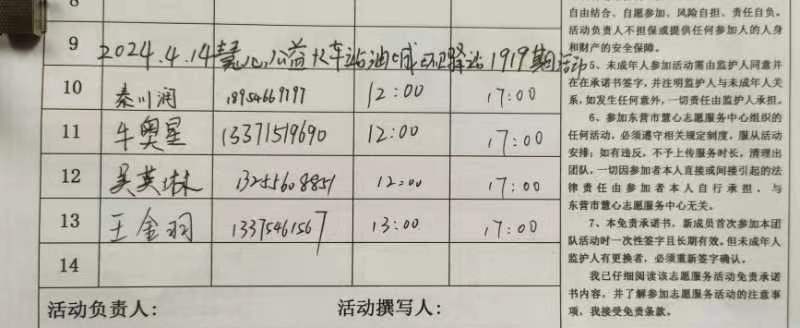 8
9 2024.4.14慧心公益火车站油城环卫驿站1919期活动
10 秦川润 18954669197 12:00 17:00
11 牛奥星 13371519690 12:00 17:00
12 吴英琳 13255608851 12:00 17:00
13 王金羽 13375461567 13:00 17:00
14
活动负责人: 活动撰写人:
自由结合、自愿参加、风险自担、责任自负。
活动负责人不担保或提供任何参加人的人身
和财产的安全保障。
5、未成年人参加活动需由监护人同意并
在在承诺书签字，并注明监护人与未成年人关
系，如发生任何意外，一切责任由监护人承担。
6、参加东营市慧心志愿服务中心组织的
任何活动，必须遵守相关规定制度，服从活动
安排；如有违反，不予上传服务时长，清理出
团队，一切因参加者本人直接或间接引起的法
律责任由参加者本人自行承担，与
东营市慧心志愿服务中心无关。
7、本免责承诺书，新成员首次参加本团
队活动时一次性签字且长期有效。但未成年人
监护人有更换者，必须重新签字确认。
我已仔细阅读该志愿服务活动免责承诺
书内容，并了解参加志愿服务活动的注意事
项，我接受免责条款。